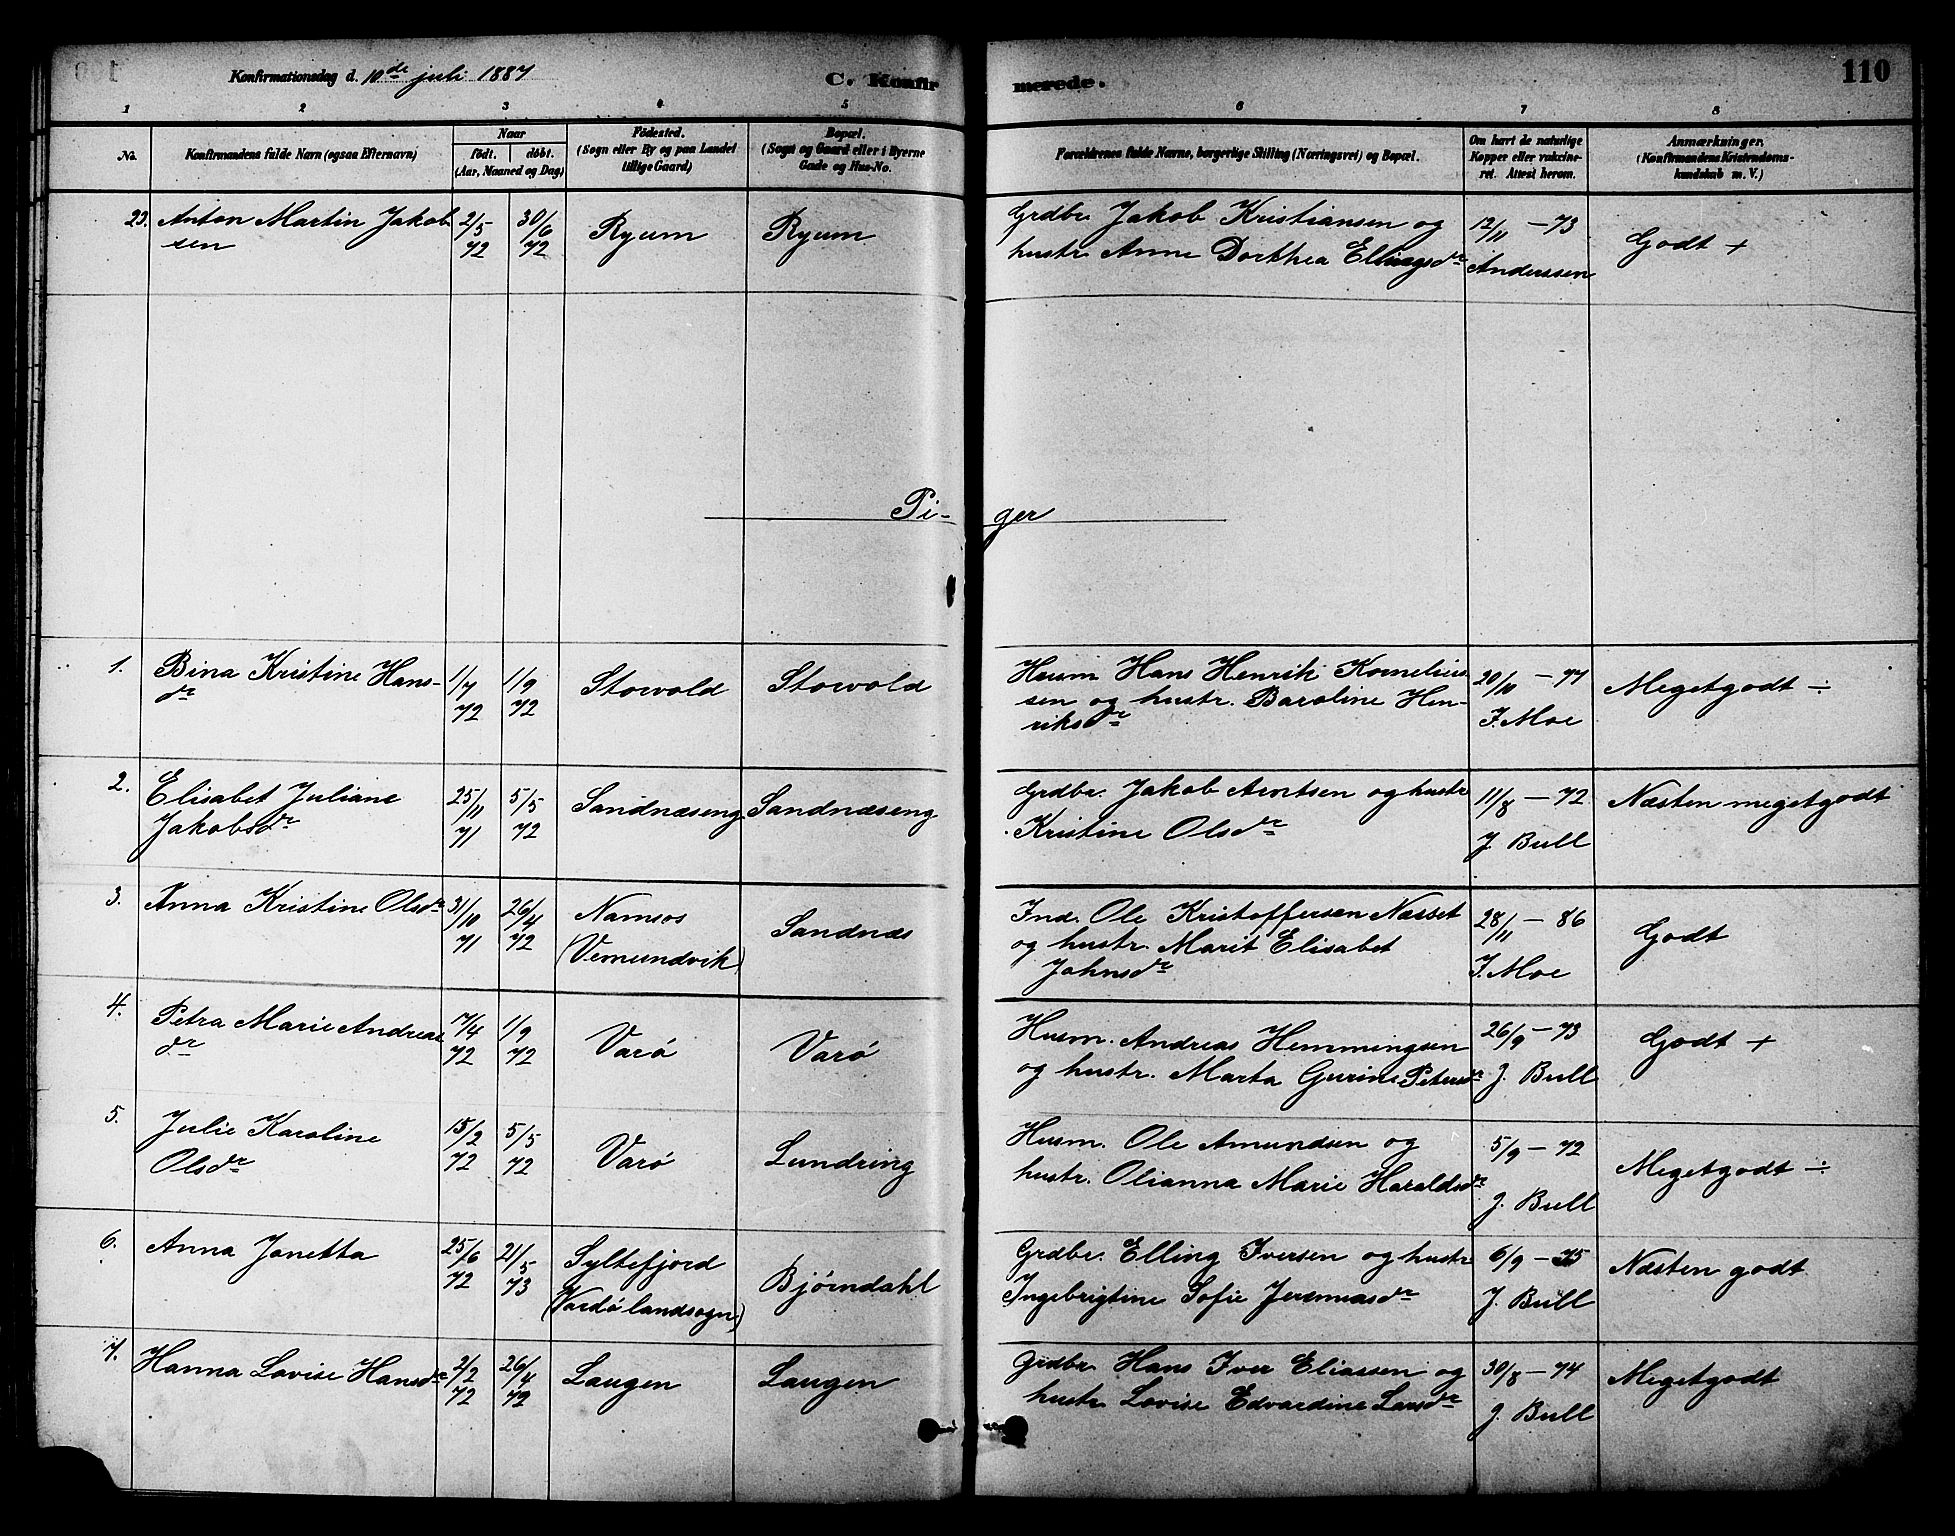 Konfirmationsdag d. 10de juli 1887
C. Konfirmerede.
110
1 2 3 4 5 6 7 8
No.
Konfirmandens fulde Navn (ogsaa Efternavn)
Naar
födt. döbt.
(Aar, Maaned og Dag)
Födested.
(Sogn eller By og paa Landet
tillige Gaard)
Bopæl.
(Sogn og Gaard eller i Byerne
Gade og Hus-No.
Forældrenes fulde Navne, borgerlige Stilling (Næringsvei) og Bopæl.
Om havt de naturlige
Kopper eller vakcine-
ret. Attest herom.
Anmærkninger.
(Konfirmandens Kristendoms-
kundskab m. V.)
23. Anton Martin Jakob
sen
2/5
72
30/6
72
Ryum
Ryum
Grdbr. Jakob Kristiansen og
hustr. Anne Dorthea Ellingsdr
12/11 - 73
Anderssen
Godt +
Pi- ger
1. Bina Kristine Hans-
dr
1/7
72
1/9
72
Storvold
Storvold
Husm Hans Henrik Kornelius
sen og hustr. Baroline Hen-
riksdr
20/10 - 77
I. Moe
Megetgodt ÷
2. Elisabet Juliane
Jakobsdr
25/11
71
5/5
72
Sandnæseng
Sandnæseng
Grdbr. Jakob Arntsen og hustr
Kristine Olsdr
11/8 - 72
J. Bull
Næsten megetgodt
3. Anna Kristine Olsdr
31/10
71
26/4
72
Namsos
(Vemundvik)
Sandnæs
Ind. Ole Kristoffersen Næsset
og hustr. Marit Elisabet
Johnsdr
28/11 - 86
I. Moe
Godt
4. Petra Marie Andreas
dr
17/4
72
1/9
72
Varø
Varø
Husm. Andreas Hemmingsen
og hustr. Marta Gurine Petersdr
26/9 - 73
J. Bull
Godt +
5. Julie Karoline
Olsdr
15/2
72
5/5
72
Varø
Lundring
Husm. Ole Amundsen og
hustr. Olianna Marie Haraldsdr
5/9 - 72
J. Bull
Megetgodt ÷
6. Anna Janetta
25/6
72
21/5
73
Syltefjord
(Vardø landsogn)
Bjørndahl
Grdbr. Elling Iversen og hustr
Ingebrigtine Sofie Jeremiasdr
6/9 - 75
J. Bull
Næsten godt
7. Hanna Lovise Hansdr
2/2
72
26/4
72
Laugen
Laugen
Grdbr. Hans Iver Eliassen og
hustr. Lovise Edvardine Larsdr
30/8 - 74
J. Bull
Megetgodt